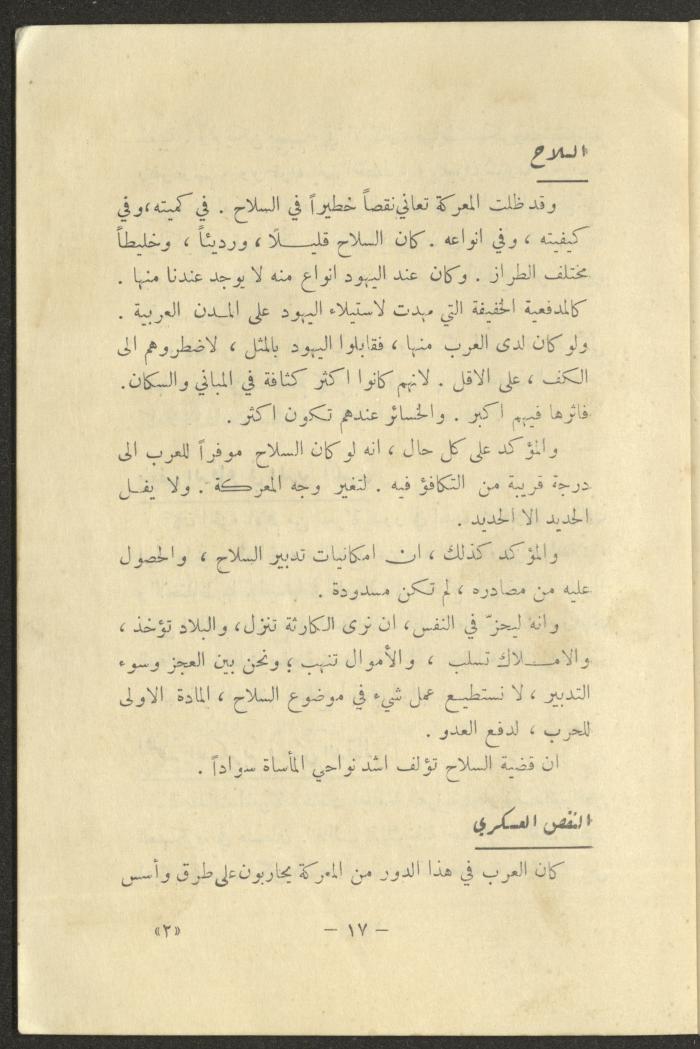 السلاح
وقد ظلت المعركة تعاني نقصاً خطيراً في السلاح . في كميته ، وفي
كيفيته ، وفي انواعه . كان السلاح قليـــلًا ، ورديئاً ، وخليطاً
مختلف الطراز . وكان عند اليهود انواع منه لا يوجد عندنا منها .
كالمدفعية الخفيفة التي مهدت لاستيلاء اليهود على المـدن العربية .
ولو كان لدى العرب منها ، فقابلوا اليهود بالمثل ، لاضطروهم الى
الكف ، على الاقل . لانهم كانوا اكثر كثافة في المباني والسكان.
فاثرها فيهم اكبر . والخسائر عندهم تـكون اكثر .
والمؤكد على كل حال ، انه لو كان السلاح موفراً للعرب الى
درجة قريبة من التكافؤ فيه . لتغير وجه المعركـة . ولا يفـل
الحديد الا الحديد .
والمؤكد كذلك ، ان امكانيات تدبير السلاح ، والحصول
عليه من مصادره ، لم تكن مسدودة .
وانه ليحزّ في النفس، ان نرى الكارثة تنزل، والبلاد تؤخذ ،
والامـــلاك تسلب ، والأموال تنهب ؛ ونحن بين العجز وسوء
التدبير ، لا نستطيـع عمل شيء في موضوع السلاح ، المادة الاولى
للحرب ، لدفع العدو .
ان قضية السلاح تؤلف اشد نواحي المأساة سواداً .
النقص العسكري
كان العرب في هذا الدور من المعركة يحاربون على طرق وأسس
— ١٧ —
«٢»